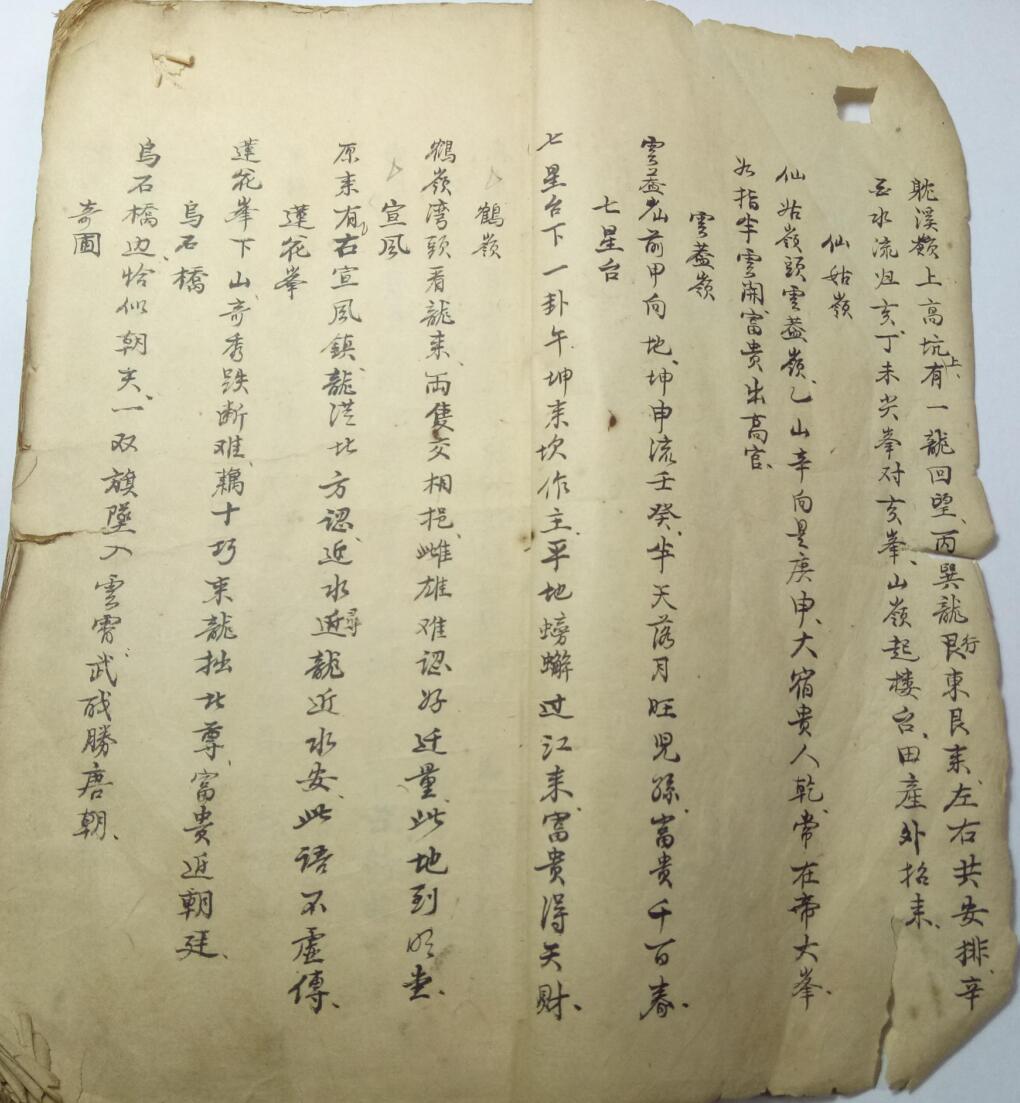 躭溪嶺上高坑上有一龍回望、丙巽龍行艮東艮来、左右共安排、辛
水流归亥、丁未尖峯对亥峯、山嶺起楼台、田産外招来、
仙姑嶺
仙姑嶺頭雲蓋嶺、乙山辛向是庚申、大宿貴人乾、常在帝大峯、
指半雲開富貴出高官、
雲蓋嶺
雲蓋山前甲向地、坤申流壬癸、半天落月旺児孫、富貴千百春、
七星台
七星台下一卦午坤来坎作主、平地螃蠏过江来、富貴得天財、
鶴嶺
鶴嶺湾頭看龍来、両隻交相挹、雌雄难認好迁量、此地到明堂、
宣風
原来有右宣風鎮、龍洪北方認、近水尋龍近水安、此語不虚傳、
蓮花峯
蓮花峯下山奇秀跌断难、藕十巧来龍拙北尊、富貴近朝廷、
烏石橋
烏石橋边恰似朝天、一双旗墜入雲霄、武成勝唐朝、
奇圃